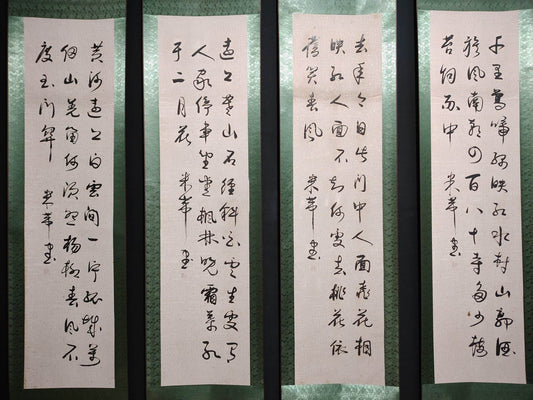 千里鶯啼綠映紅水村山郭酒
旗風南朝四百八十寺多少樓
台烟雨中 米芾書
去年今日此門中人面桃花相
映紅人面不知何處去桃花依
舊笑春風 米芾書
遠上寒山石徑斜白雲生處有
人家停車坐愛楓林晚霜葉紅
于二月花 米芾書
黃河遠上白雲間一片孤城萬
仞山羌笛何須怨楊柳春風不
度玉門關 米芾書